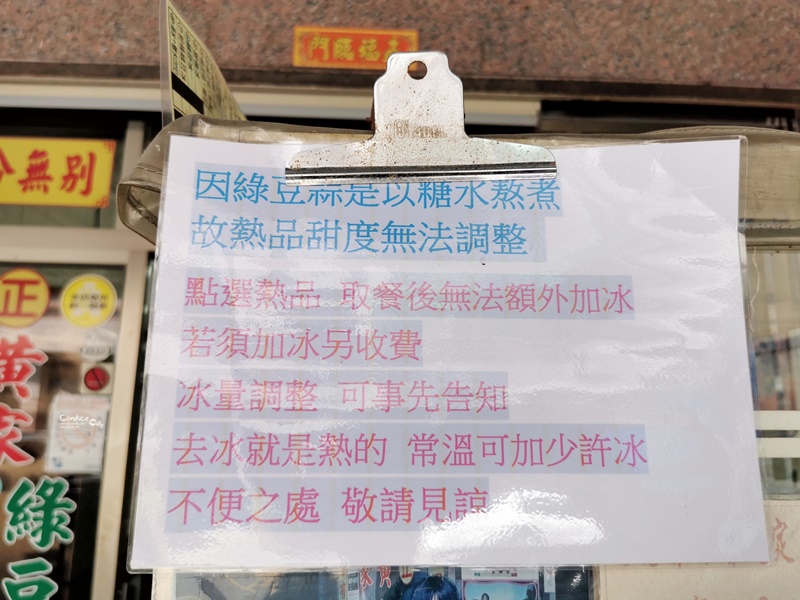 五福臨門
分無別
因綠豆蒜是以糖水熬煮
故熱品甜度無法調整
點選熱品 取餐後無法額外加冰
若須加冰另收費
冰量調整 可事先告知
去冰就是熱的 常溫可加少許冰
不便之處 敬請見諒
正
黃家
綠豆
Candice
家
正
黃
家